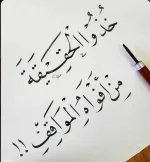 خُذُوا الْحَقِيقَةَ
مِنْ أَفْوَاهِ الْمَوَاقِفِ !!